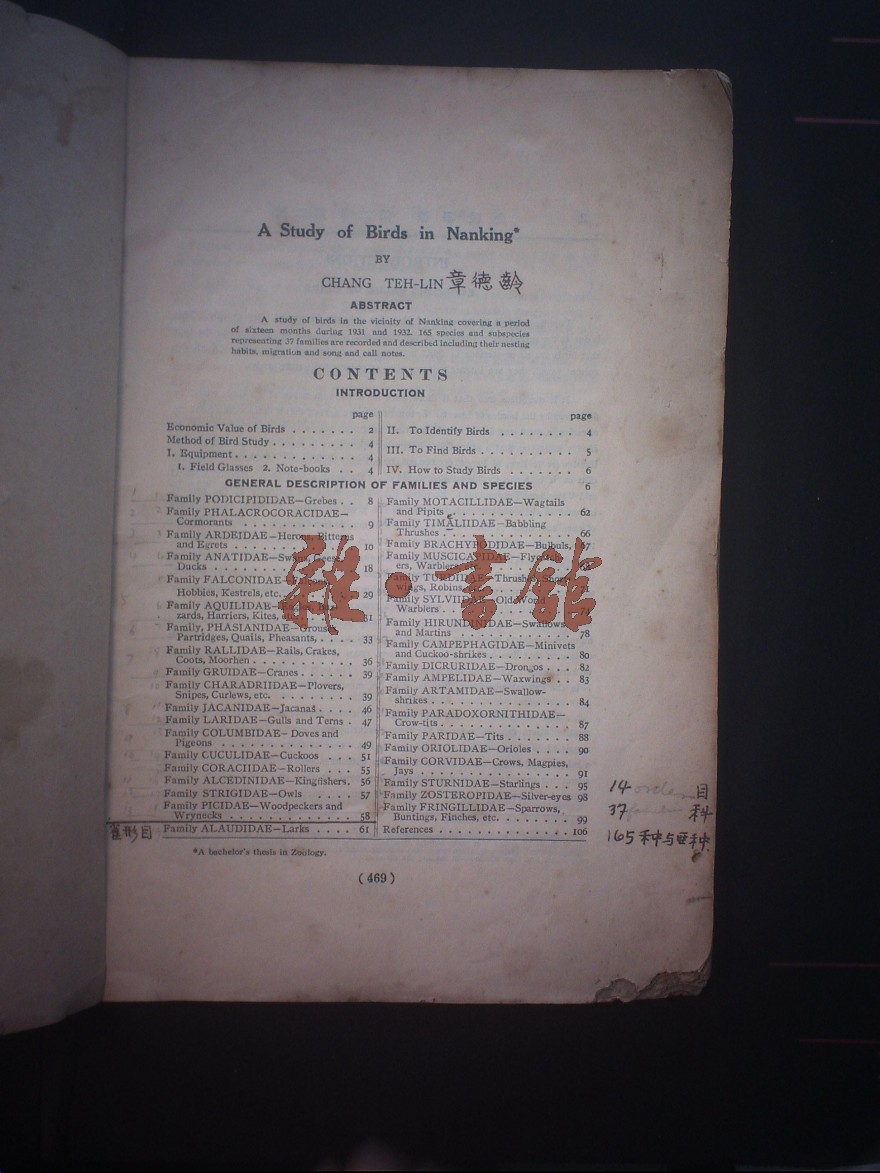 A Study of Birds in Nanking*
BY
CHANG TEH-LIN 章德齡
ABSTRACT
A study of birds in the vicinity of Nanking covering a period
of sixteen months during 1931 and 1932. 165 species and subspecies
representing 37 families are recorded and described including their nesting
habits, migration and song and call notes.
CONTENTS
INTRODUCTION
page
Economic Value of Birds . . . . . . . 2
Method of Bird Study . . . . . . . . . 4
I. Equipment . . . . . . . . . . . . . 4
1. Field Glasses 2. Note-books . . 4
page
II. To Identify Birds . . . . . . . . 4
III. To Find Birds . . . . . . . . . . 5
IV. How to Study Birds . . . . . . . 6
GENERAL DESCRIPTION OF FAMILIES AND SPECIES 6
Family PODICIPIDIDAE—Grebes . . 8
Family PHALACROCORACIDAE—
Cormorants . . . . . . . . . . . . 9
Family ARDEIDAE—Herons, Bitterns
and Egrets . . . . . . . . . . . . 10
Family ANATIDAE—Swans, Geese,
Ducks . . . . . . . . . . . . . . . 18
Family FALCONIDAE—Falcons,
Hobbies, Kestrels, etc. . . . . . . 29
Family AQUILIDAE—Eagles, Buz-
zards, Harriers, Kites, etc. . . . 31
Family, PHASIANIDAE—Grouse,
Partridges, Quails, Pheasants, . . . . 33
Family RALLIDAE—Rails, Crakes,
Coots, Moorhen . . . . . . . . . . 36
Family GRUIDAE—Cranes . . . . . . 39
Family CHARADRIIDAE—Plovers,
Snipes, Curlews, etc. . . . . . . . . 39
Family JACANIDAE—Jacanas . . . . 46
Family LARIDAE—Gulls and Terns . 47
Family COLUMBIDAE—Doves and
Pigeons . . . . . . . . . . . . . . 49
Family CUCULIDAE—Cuckoos . . . 51
Family CORACIIDAE—Rollers . . . 55
Family ALCEDINIDAE—Kingfishers. 56
Family STRIGIDAE—Owls . . . . 57
Family PICIDAE—Woodpeckers and
Wrynecks . . . . . . . . . . . . . 58
雀形目 Family ALAUDIDAE—Larks . . . . 61
Family MOTACILLIDAE—Wagtails
and Pipits . . . . . . . . . . . . 62
Family TIMALIIDAE—Babbling
Thrushes . . . . . . . . . . . . . 66
Family BRACHYPODIDAE—Bulbuls, 67
Family MUSCICAPIDAE—Flycatch-
ers, Warblers, etc.
Family TURDIDAE—Thrushes, Short-
wings, Robins,
Family SYLVIIDAE—Old World
Warblers . . . . . . . . . . . . .
Family HIRUNDINIDAE—Swallows
and Martins . . . . . . . . . . . 78
Family CAMPEPHAGIDAE—Minivets
and Cuckoo-shrikes . . . . . . . . 80
Family DICRURIDAE—Drongos . . . 82
Family AMPELIDAE—Waxwings . . 83
Family ARTAMIDAE—Swallow-
shrikes . . . . . . . . . . . . . . 84
Family PARADOXORNITHIDAE—
Crow-tits . . . . . . . . . . . . . 87
Family PARIDAE—Tits . . . . . . . 88
Family ORIOLIDAE—Orioles . . . . 90
Family CORVIDAE—Crows, Magpies,
Jays . . . . . . . . . . . . . . . 91
Family STURNIDAE—Starlings . . . 95
Family ZOSTEROPIDAE—Silver-eyes 98
Family FRINGILLIDAE—Sparrows,
Buntings, Finches, etc. . . . . . . 99
References . . . . . . . . . . . . . 106
14 orders 目
37 科
165 种与亚种
*A bachelor's thesis in Zoology.
(469)
雜·書館